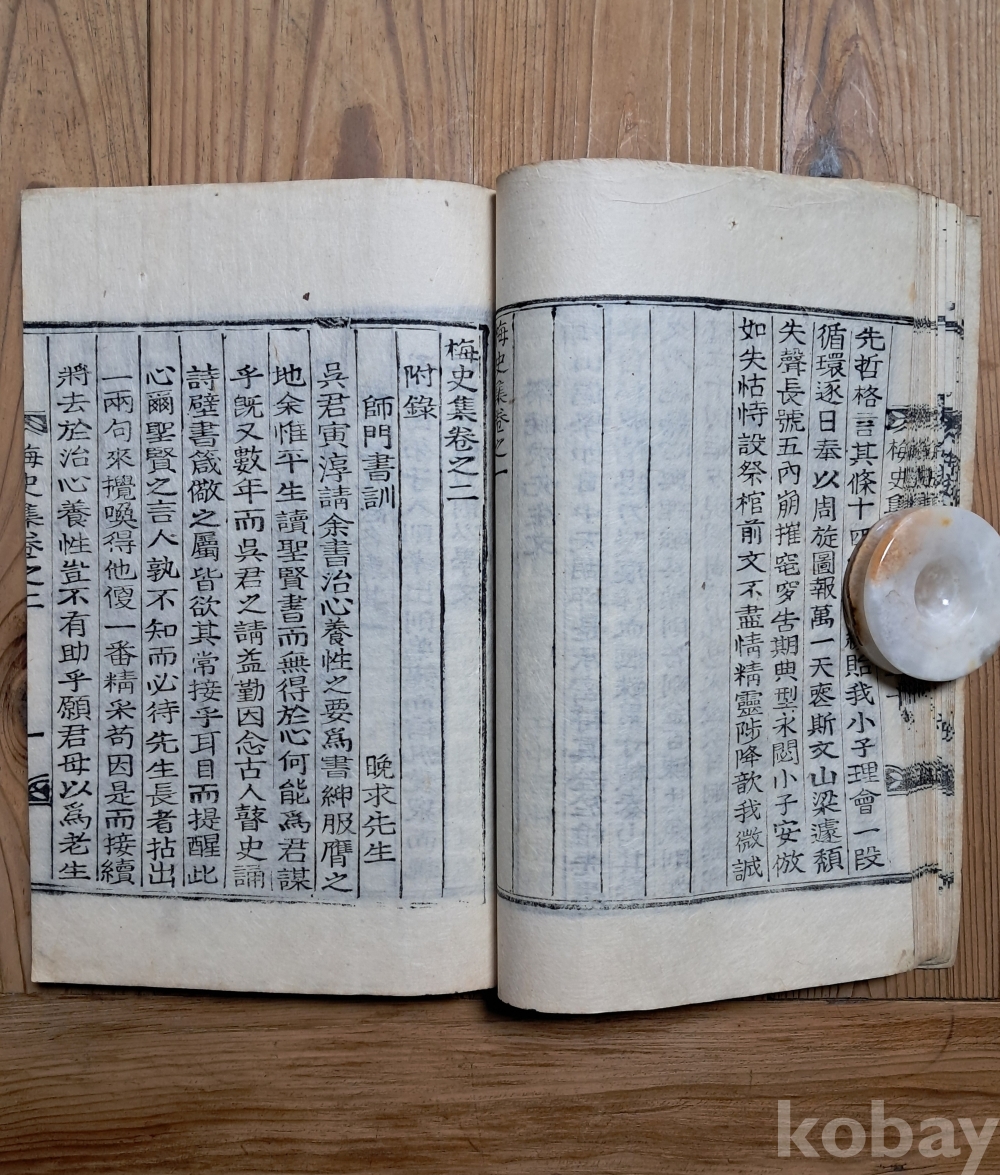 先哲格言其條十四 貽我小子理會一段
循環逐日奉以周旋圖報萬一天喪斯文山梁遽頹
失聲長號五內崩摧窀穸告期典型永閟小子安倣
如失怙恃設祭棺前文不盡情精靈陟降歆我微誠
梅史集卷之一
梅史集
梅史集卷之二
附錄
師門書訓 晩求先生
吳君寅淳請余書治心養性之要爲書紳服膺之
地余惟平生讀聖賢書而無得於心何能爲君謀
乎旣又數年而吳君之請益勤因念古人瞽史誦
詩壁書箴儆之屬皆欲其常接乎耳目而提醒此
心爾聖賢之言人孰不知而必待先生長者拈出
一兩句來攪喚得他傻一番精采苟因是而接續
將去於治心養性豈不有助乎願君毋以爲老生
梅史集卷之二
一
kobay